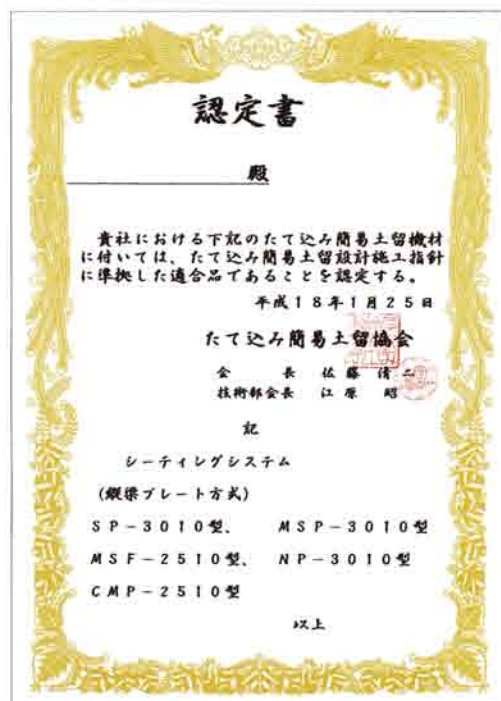 認定書
殿
貴社における下記のたて込み簡易土留機材
に付いては、たて込み簡易土留設計施工指針
に準拠した適合品であることを認定する。
平成18年1月25日
たて込み簡易土留協会
会長 佐藤清二
技術部会長 江原昭
記
シーティングシステム
(縦梁プレート方式)
SP-3010型、 MSP-3010型
MSF-2510型、 NP-3010型
CMP-2510型
以上